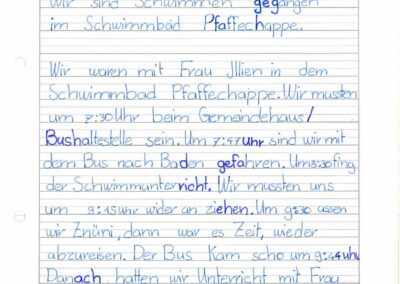 Wir sind Schwimmen gegangen
im Schwimmbad Pfaffechappe.
Wir waren mit Frau Jllien in dem
Schwimmbad Pfaffechappe. Wir mussten
um 7:30 Uhr beim Gemeindehaus/
Bushaltestelle sein. Um 7:47 uhr sind wir mit
dem Bus nach Baden gefahren. Um 8:30 fing
der Schwimmunterricht. Wir mussten uns
um 9:15 uhr wider an ziehen. Um 9:30 assen
wir Znüni, dann war es Zeit, wieder
abzureisen. Der Bus Kam scho um 9:44 uhr.
Danach hatten wir Unterricht mit Frau